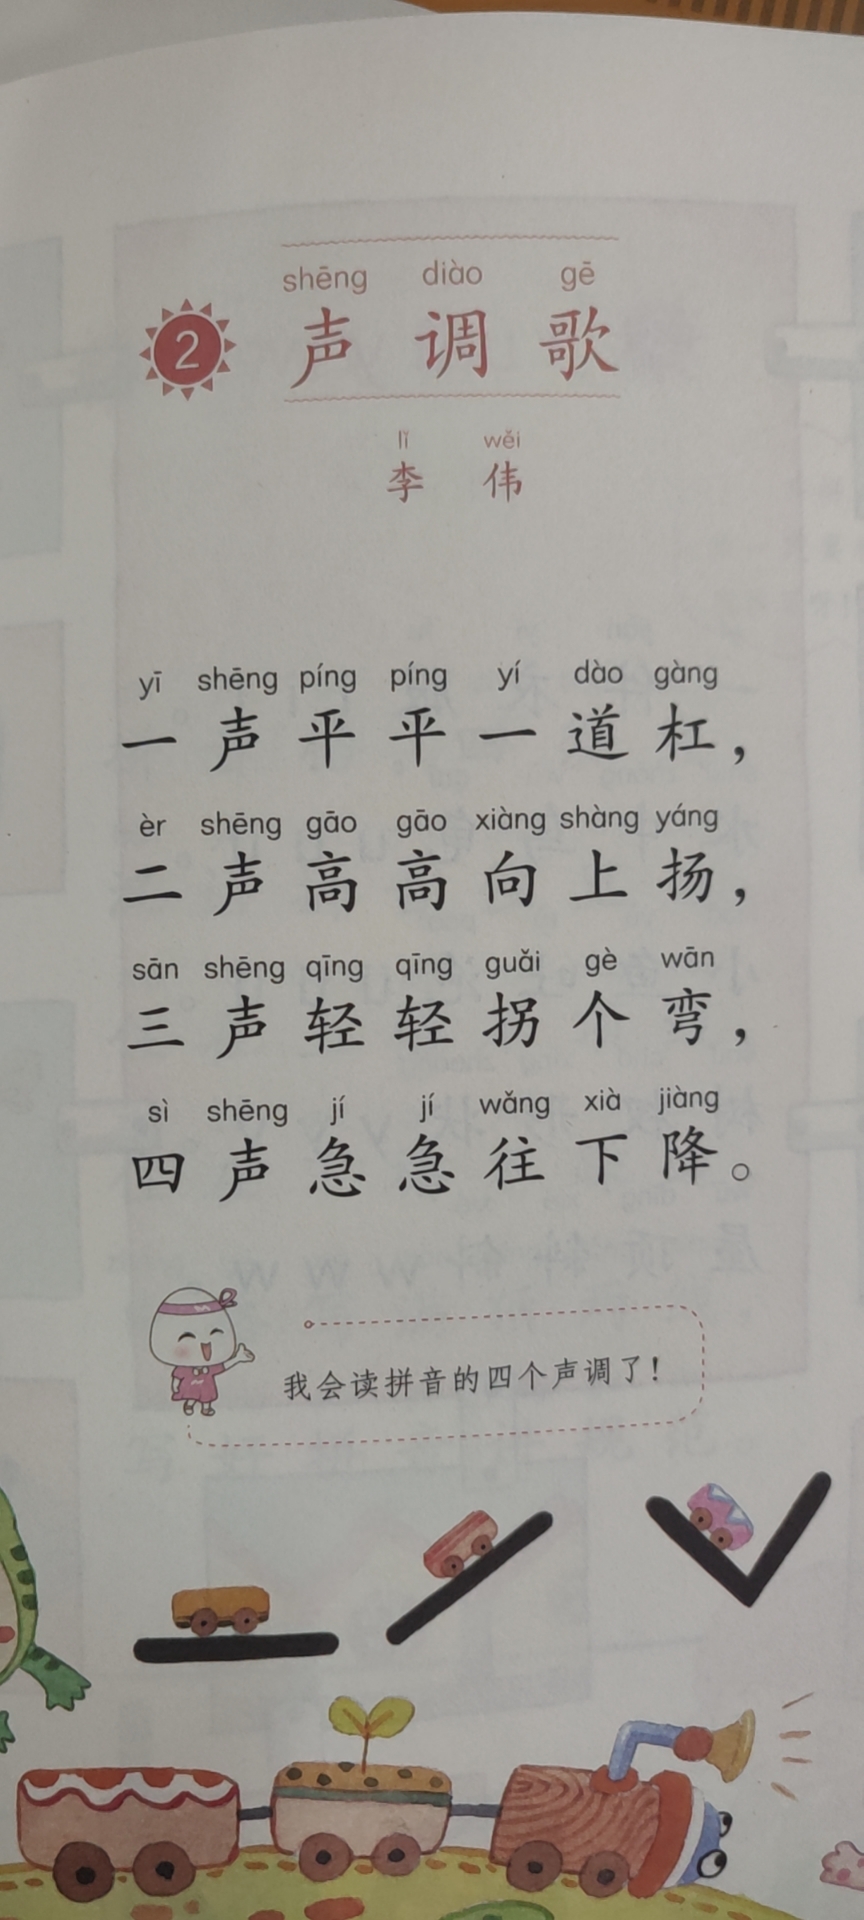 shēng diào gē
2 声调歌
lǐ wěi
李伟
yī shēng píng píng yí dào gàng
一声平平一道杠，
èr shēng gāo gāo xiàng shàng yáng
二声高高向上扬，
sān shēng qīng qīng guǎi gè wān
三声轻轻拐个弯，
sì shēng jí jí wǎng xià jiàng
四声急急往下降。
我会读拼音的四个声调了！